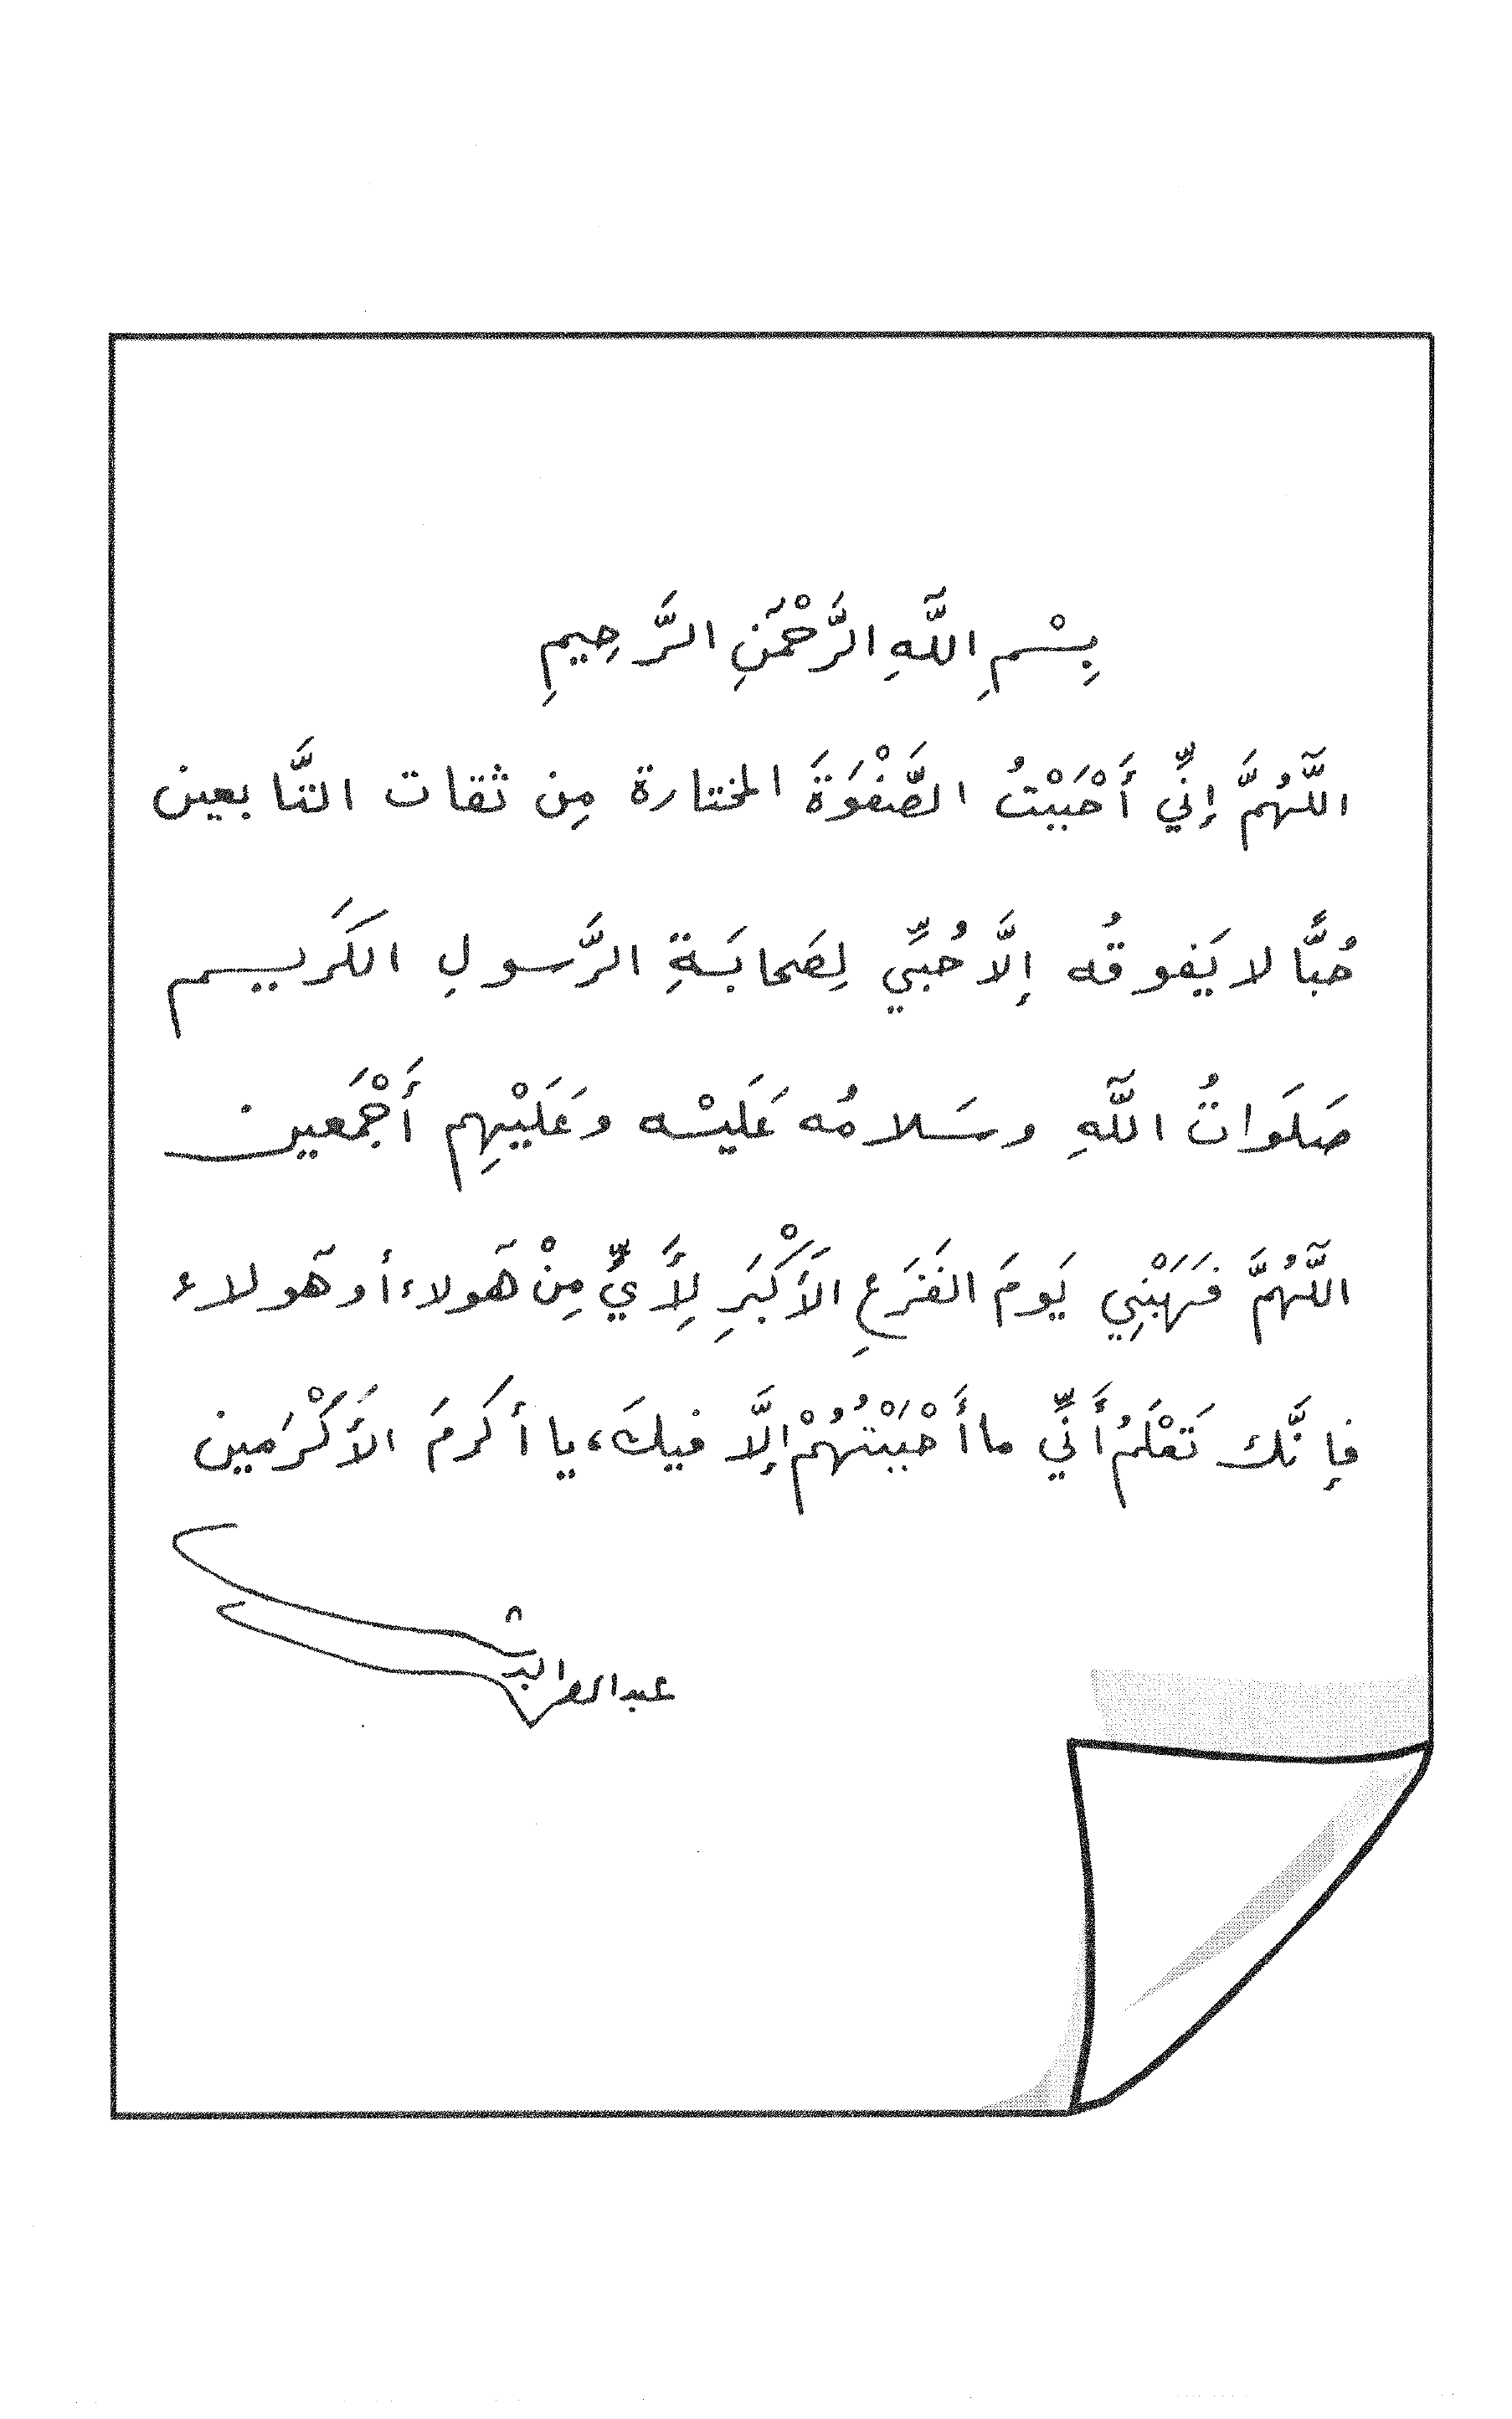 بِسْمِ اللَّهِ الرَّحْمَنِ الرَّحِيمِ
اللَّهُمَّ إِنِّي أَحْبَبْتُ الصَّفْوَةَ المختارة مِن ثقات التَّابعين
حُبًّا لا يَفوقُه إلَّا حُبِّي لِصَحابَةِ الرَّسولِ الكَريم
صَلَوَاتُ اللَّهِ وسَلامُه عَلَيْه وعَلَيْهِم أَجْمَعين
اللَّهُمَّ فَهَبْنِي يَومَ الفَزَعِ الأَكْبَرِ لِأَيٍّ مِنْ هَٓولاء أو هَٓولاء
فإنَّك تَعْلَمُ أَنِّي ما أَحْبَبْتُهُمْ إلَّا فيكَ، يا أكرمَ الأَكْرَمين